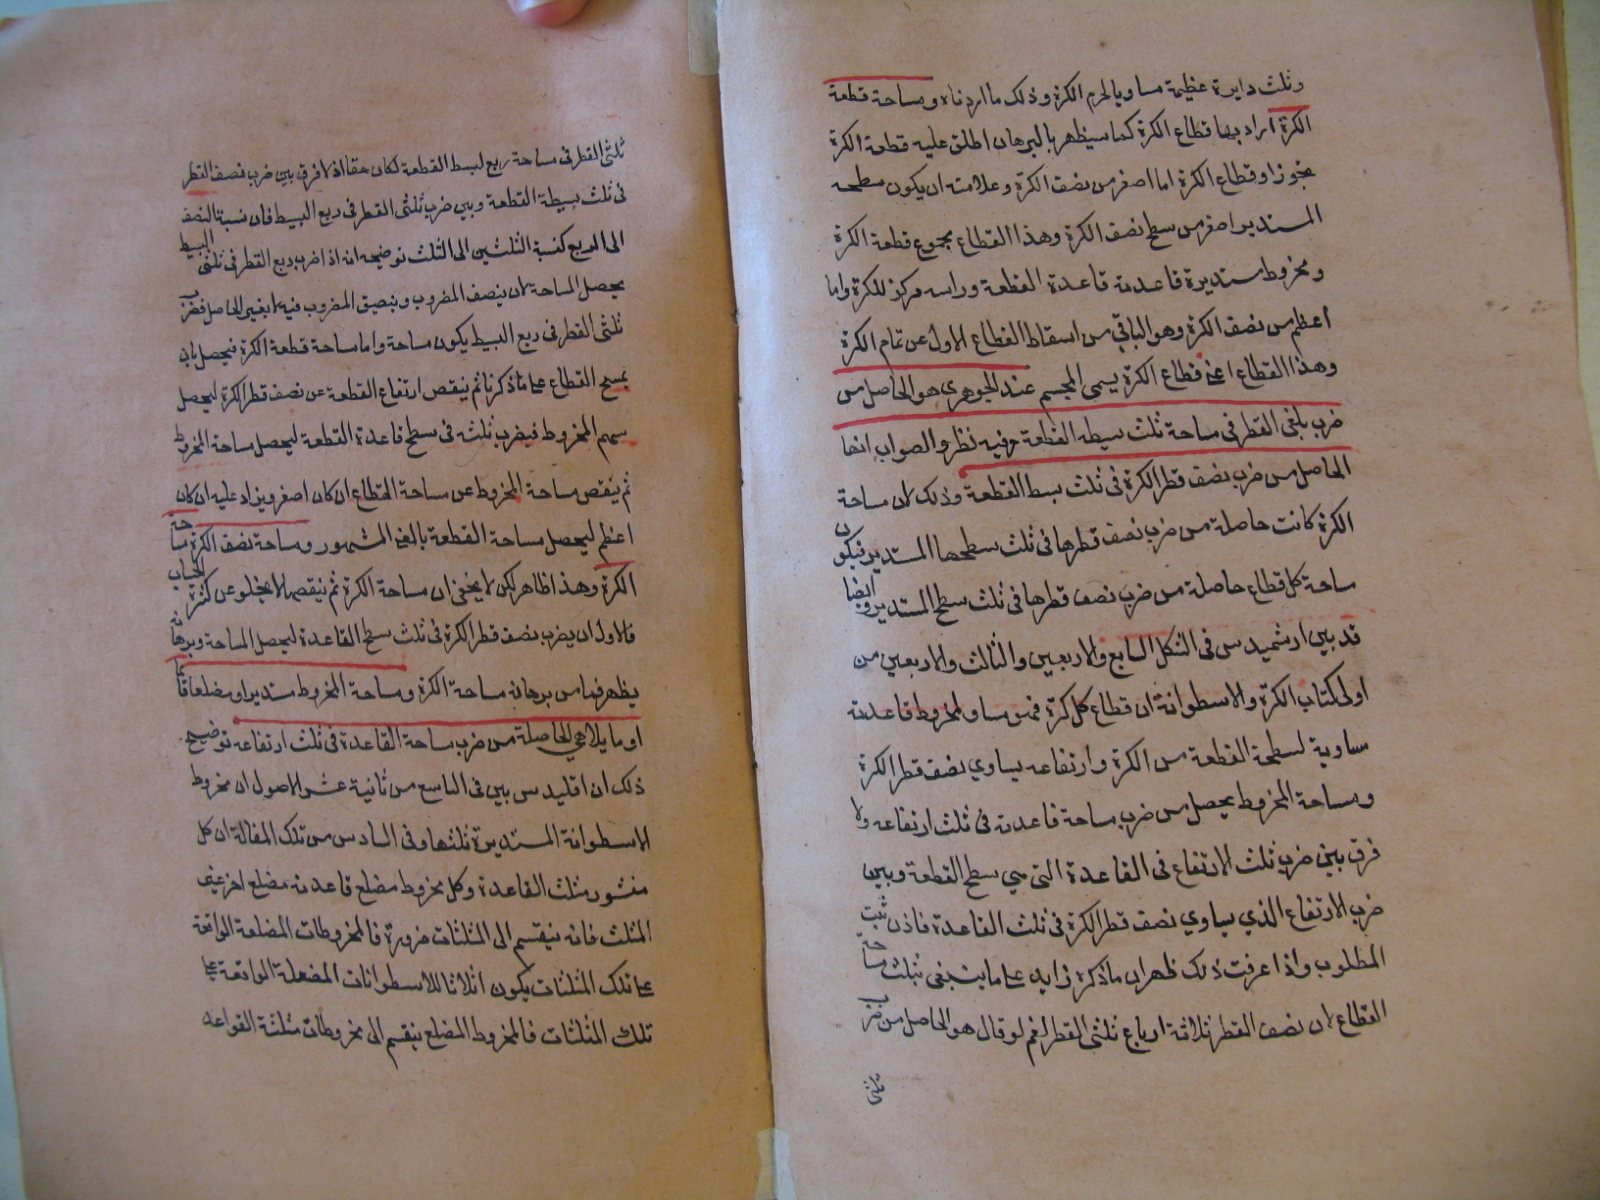 وثلث دايرة عظيمة مساويا لجرم الكرة وذلك ما اردناه ومساحة قطعة
الكرة اراد بها قطاع الكرة كما سيظهر بالبرهان اطلق عليه قطعة الكرة
تجوزا وقطاع الكرة اما اصغر من نصف الكرة وعلامته ان يكون سطحه
المستدير اصغر من سطح نصف الكرة وهذا القطاع مجموع قطعة الكرة
ومخروط مستديرة قاعدته قاعدة القطعة وراسه مركز للكرة واما
اعظم من نصف الكرة وهو الباقي من اسقاط القطاع الاول عن تمام الكرة
وهذا القطاع اعني قطاع الكرة يسمى المجسم عند الجوهري هو الحاصل من
ضرب ثلثي القطر في مساحة ثلث بسيطه القطعة وفيه نظر والصواب انها
الحاصل من ضرب نصف قطر الكرة في ثلث بسط القطعة وذلك لان مساحة
الكرة كانت حاصلة من ضرب نصف قطرها في ثلث سطحها المستدير فيكون
ساحة كل قطاع حاصلة من ضرب نصف قطرها في ثلث سطح المستدير وايضا
قد بين ارشميدس في الشكل السابع والاربعين والثالث والاربعين من
اولى كتاب الكرة والاسطوانة ان قطاع كل كرة فهو مساو لمخروط قاعدته
مساوية لسطحة القطعة من الكرة وارتفاعه يساوي نصف قطر الكرة
ومساحة المخروط يحصل من ضرب مساحة قاعدته في ثلث ارتفاعه ولا
فرق بين ضرب ثلث الارتفاع في القاعدة التي هي سطح القطعة وبين
ضرب الارتفاع الذي يساوي نصف قطر الكرة في ثلث القاعدة فاذن ثبت
المطلوب واذا عرفت ذلك ظهر ان ما ذكره زايد على ما ينبغي بثلث مساحة
القطاع لان نصف القطر ثلاثة ارباع ثلثي القطر نعم لو قال هو الحاصل من ضرب
ثلثي
ثلثي القطر في مساحة ربع لبسط القطعة لكان حقا اذ لا فرق بين ضرب نصف القطر
في ثلث بسيطة القطعة وبين ضرب ثلثي القطر في ربع البسيط فان نسبة النصف
الى الربع كنسبة الثلثين الى الثلث توضيحه انه اذا ضرب ربع القطر في ثلثي البسيط
يحصل المساحة لان ينصف المضروب و المضروب فيه لا يغير الحاصل فضرب
ثلثي القطر في ربع البسيط يكون مساحة واما مساحة قطعة الكرة فيحصل بان
يمسح القطاع على ما ذكرنا ثم ينقص ارتفاع القطعة عن نصف قطر الكرة ليحصل
سهم المخروط فيضرب ثلثه في سطح قاعدة القطعة ليحصل مساحة المخروط
ثم ينقص مساحة المخروط عن مساحة القطاع ان كان اصغر ويزاد عليه ان كان
اعظم ليحصل مساحة القطعة بالمعنى المشهور ومساحة نصف الكرة مساحة
الكرة وهذا ظاهر لكن لا يخفى ان مساحة الكرة ثم تنقصها لا يخلو عن كثرة الحساب
فالاول ان يضرب نصف قطر الكرة في ثلث سطح القاعدة ليحصل المساحة وبرهانه
يظهر فيما من برهانه مساحة الكرة ومساحة المخروط مستديرا ومضلعا قائما
او مايلا هي الحاصلة من ضرب مساحة القاعدة في ثلث ارتفاعه توضيح
ذلك ان اقليدس بين في التاسع من ثانية عشر الاصول ان مخروط
الاسطوانة المستديرة ثلثها وفي السادس من تلك المقالة ان كل
منشور مثلث القاعدة وكل مخروط مضلع قاعدته مضلع اخر غير
المثلث فانه ينقسم الى المثلثات ضرورة فالمخروطات المضلعة الواقعة
على تلك المثلثات يكون اثلاثا للاسطوانات المضلعة الواقعة على
تلك المثلثات فالمخروط المضلع ينقسم الى مخروطات مثلثة القواعد